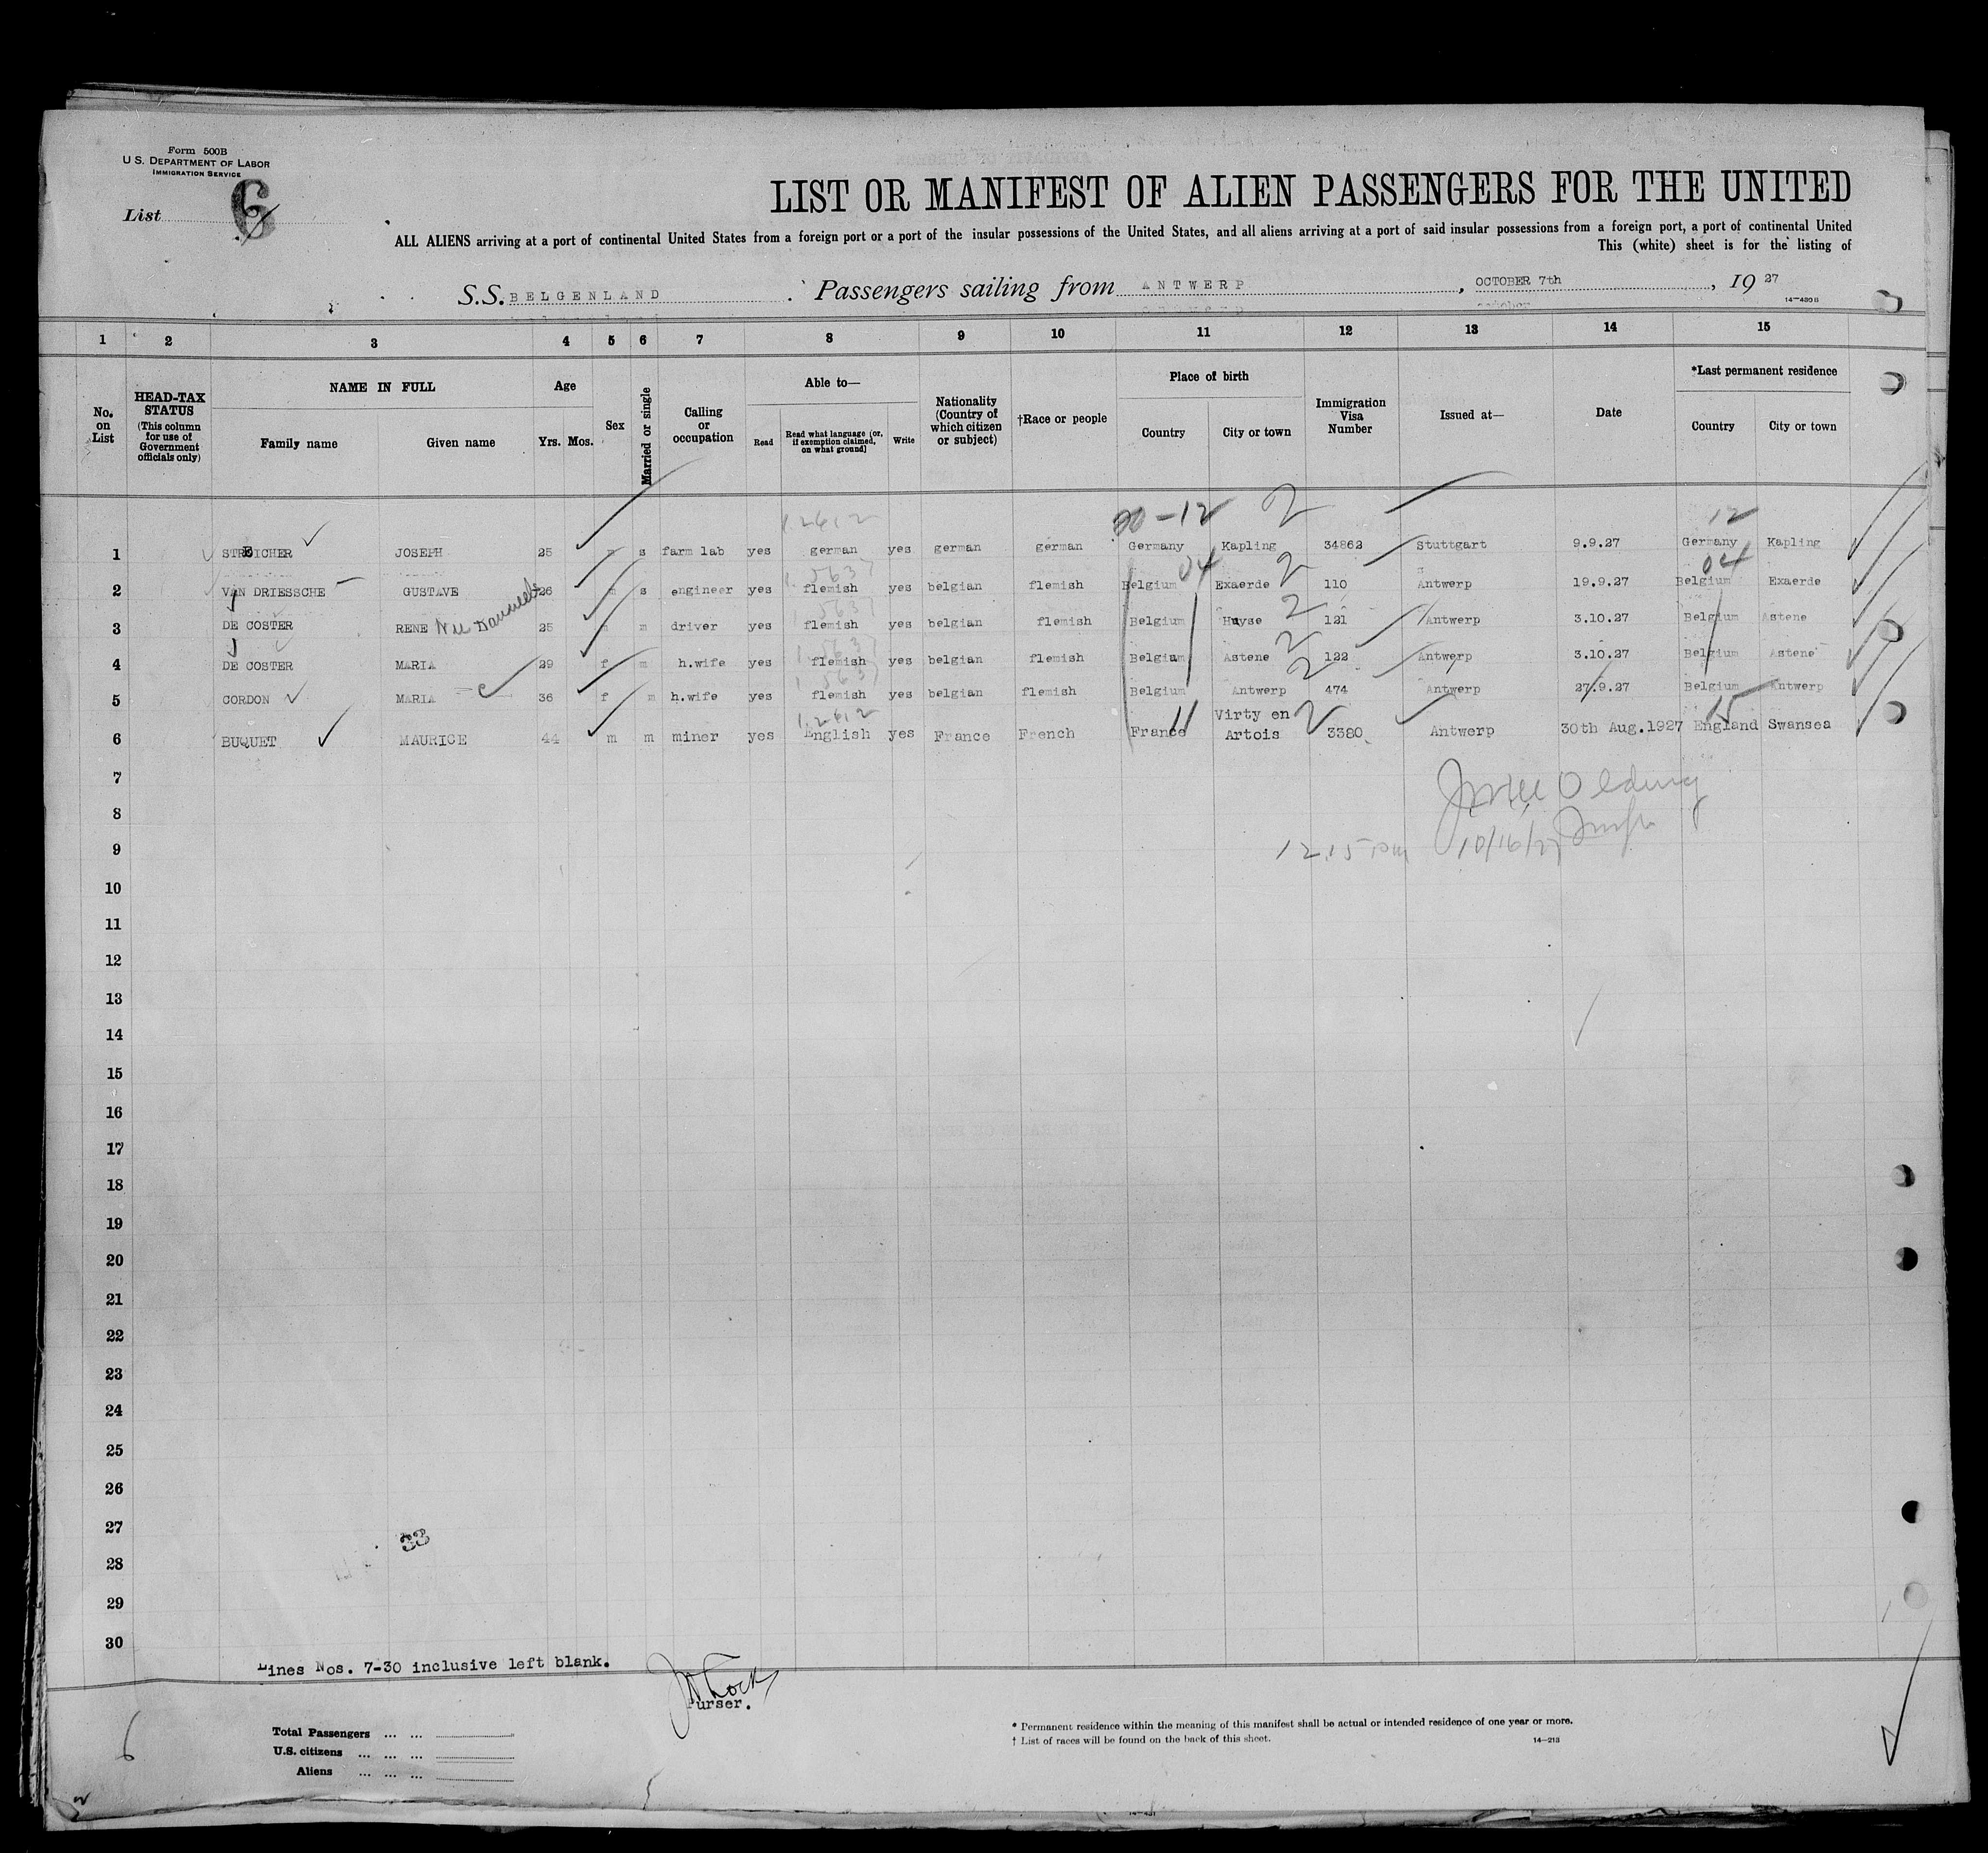 Form 500B
U.S. DEPARTMENT OF LABOR
IMMIGRATION SERVICE
List 6
LIST OR MANIFEST OF ALIEN PASSENGERS FOR THE UNITED
ALL ALIENS arriving at a port of continental United States from a foreign port or a port of the insular possessions of the United States, and all aliens arriving at a port of said insular possessions from a foreign port, a port of continental United
This (white) sheet is for the listing of
S.S. BELGENLAND Passengers sailing from ANTWERP, OCTOBER 7th, 19 27
14-430 B
1 2 3 4 5 6 7 8 9 10 11 12 13 14 15
No. on List
HEAD-TAX STATUS (This column for use of Government officials only)
NAME IN FULL
Family name Given name
Age
Yrs. Mos.
Sex
Married or single
Calling or occupation
Able to—
Read Read what language (or, if exemption claimed, on what ground) Write
Nationality (Country of which citizen or subject)
†Race or people
Place of birth
Country City or town
Immigration Visa Number
Issued at—
Date
*Last permanent residence
Country City or town
1.2612 00-12 2 12
1 STREICHER JOSEPH 25 m s farm lab yes german yes german german Germany Kapling 34862 Stuttgart 9.9.27 Germany Kapling
1.5637 04 2 04
2 VAN DRIESSCHE GUSTAVE 26 m s engineer yes flemish yes belgian flemish Belgium Exaerde 110 Antwerp 19.9.27 Belgium Exaerde
1.5637 2
3 DE COSTER RENE 25 m m driver yes flemish yes belgian flemish Belgium Huyse 121 Antwerp 3.10.27 Belgium Astene
1.5637 2
4 DE COSTER MARIA 29 f m h.wife yes flemish yes belgian flemish Belgium Astene 122 Antwerp 3.10.27 Belgium Astene
1.5637 2
5 CORDON MARIA 36 f m h.wife yes flemish yes belgian flemish Belgium Antwerp 474 Antwerp 27.9.27 Belgium Antwerp
1.2612 11 Virty en 2 15
6 BUQUET MAURICE 44 m m miner yes English yes France French France Artois 3380 Antwerp 30th Aug.1927 England Swansea
7
8
12.15 pm 10/16/27
9
10
11
12
13
14
15
16
17
18
19
20
21
22
23
24
25
26
27
33
28
29
30
Lines Nos. 7-30 inclusive left blank.
Purser.
6
Total Passengers ... ...
U.S. citizens ... ... ...
Aliens ... ... ...
* Permanent residence within the meaning of this manifest shall be actual or intended residence of one year or more.
† List of races will be found on the back of this sheet.
14-213